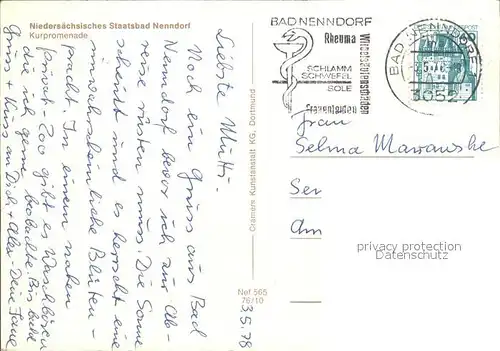 Niedersächsisches Staatsbad Nenndorf
Kurpromenade
Liebste Mutti.
Noch ein Gruss aus Bad
Nenndorf bevor ich zur Ab-
reise rüsten muss. Die Sonne
scheint und es herrscht eine
unwahrscheinliche Blüten-
pracht. In einem nahen
privat-Zoo gibt es Waschbären
die ich gerne beobachte. Bis bald
Gruss + Kuss an Dich + Alle. Deine
3.5.78
Cramers Kunstanstalt KG, Dortmund
Nef 565
76/10
BAD NENNDORF
Rheuma
Wirbelsäulenschäden
SCHLAMM
SCHWEFEL
SOLE
Frauenleiden
BAD NENNDORF
3052
Frau
Selma
privacy protection
Datenschutz